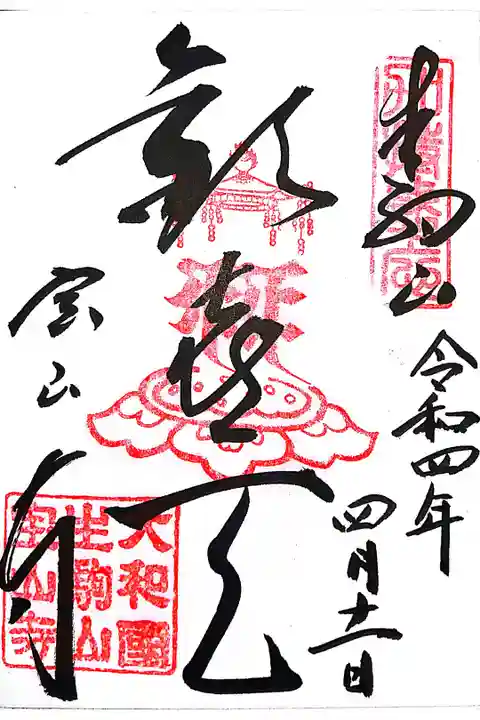 生駒山
令和四年
四月十一日
歓喜天
宝山寺
大和國
生駒山
宝山寺